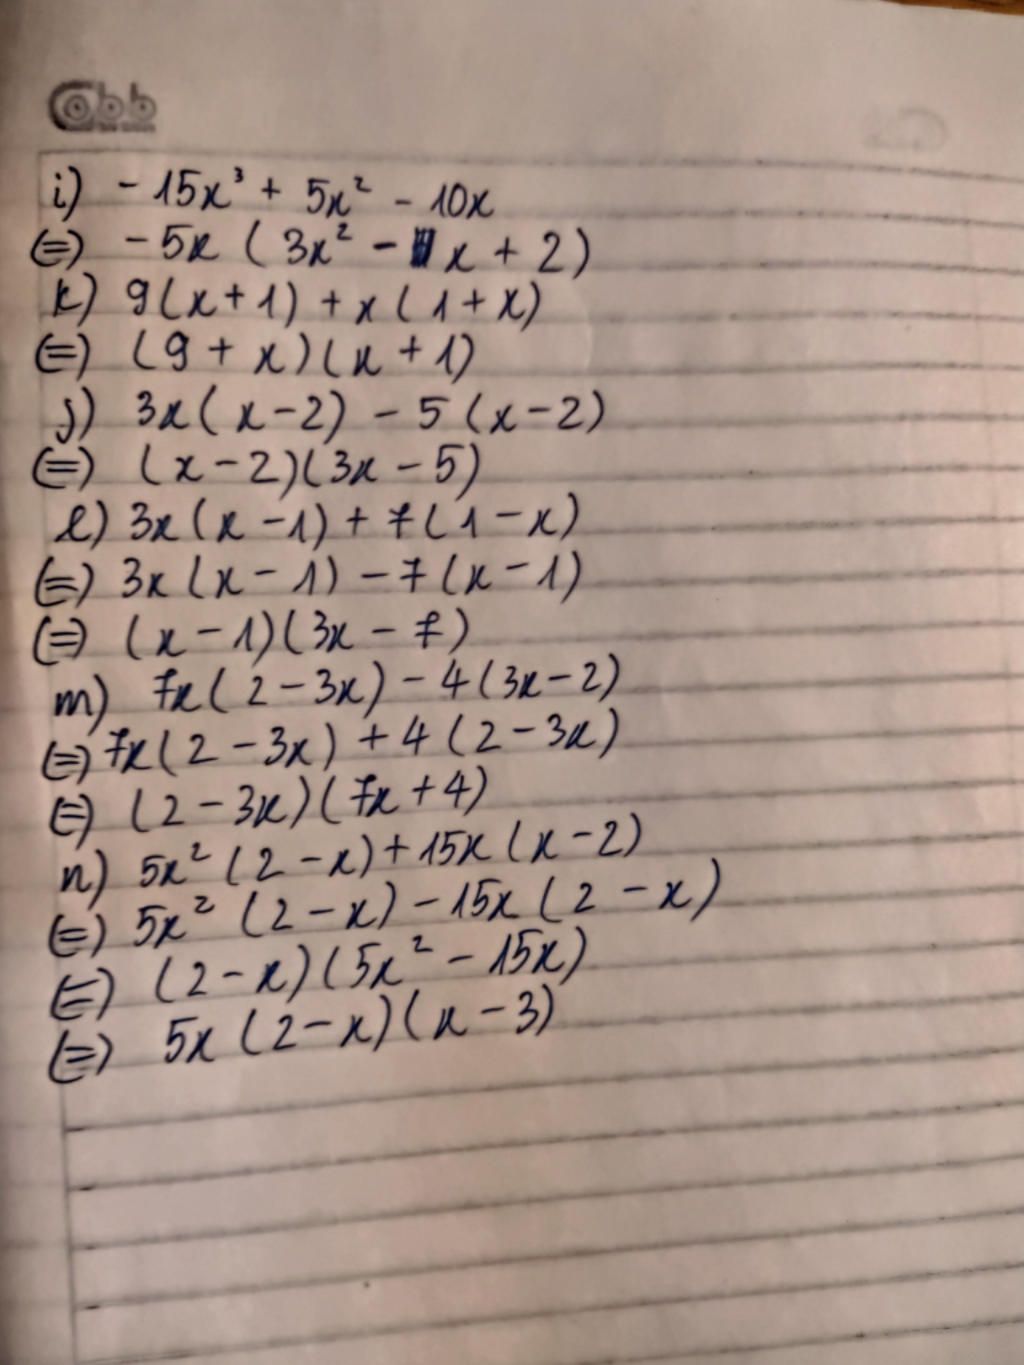 Cabb
i) - 15x³ + 5x² - 10x
(=) - 5x ( 3x² - x + 2)
k) 9(x+1) + x(1+x)
(=) (9 + x)(x + 1)
j) 3x(x-2) - 5(x-2)
(=) (x-2)(3x-5)
l) 3x(x-1) + 7(1-x)
(=) 3x(x-1) - 7(x-1)
(=) (x-1)(3x-7)
m) 7x(2-3x) - 4(3x-2)
(=) 7x(2-3x) + 4(2-3x)
(=) (2-3x)(7x+4)
n) 5x²(2-x) + 15x(x-2)
(=) 5x²(2-x) - 15x(2-x)
(=) (2-x)(5x²-15x)
(=) 5x(2-x)(x-3)